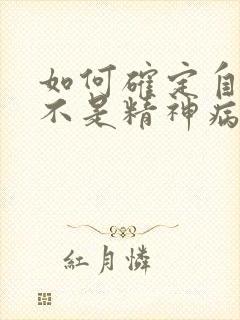 如何確定自
不是精神病
紅月憐